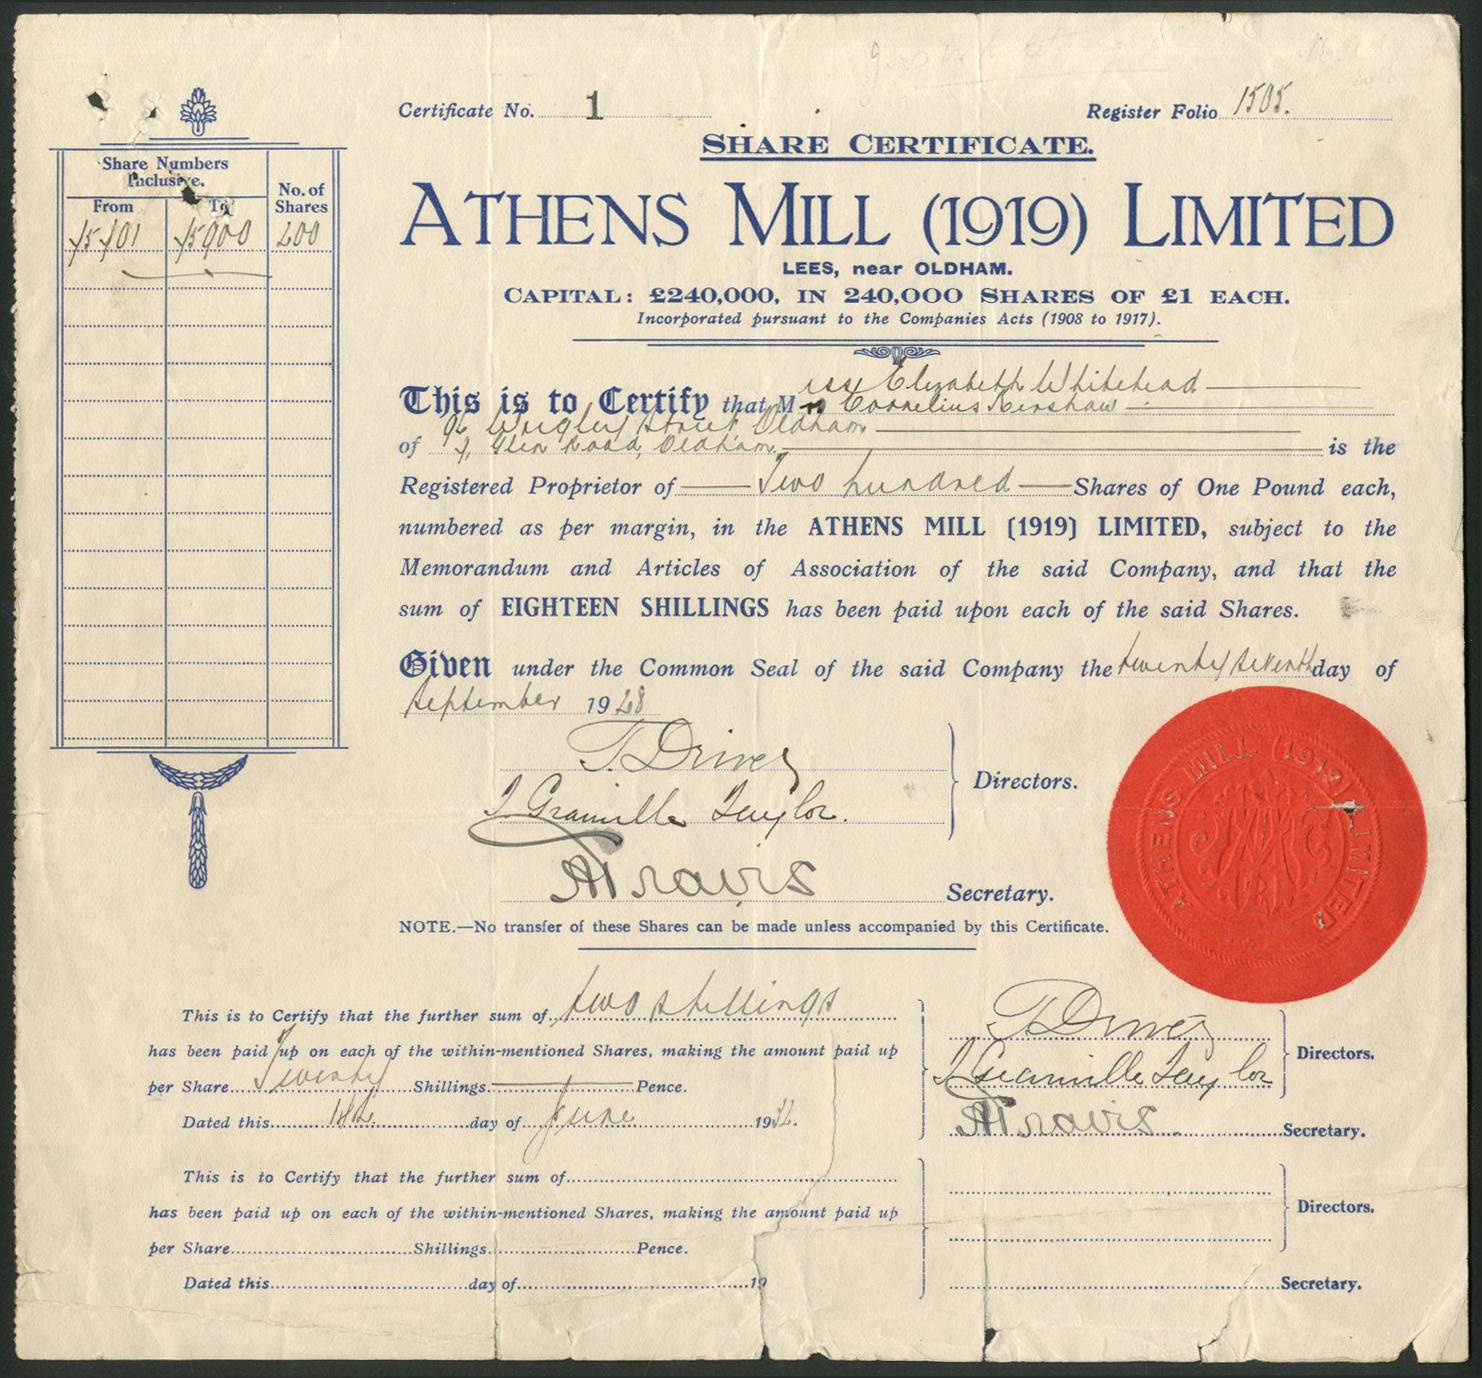 Certificate No. 1
Register Folio 1505.
SHARE CERTIFICATE.
ATHENS MILL (1919) LIMITED
LEES, near OLDHAM.
CAPITAL: £240,000, IN 240,000 SHARES OF £1 EACH.
Incorporated pursuant to the Companies Acts (1908 to 1917).
Share Numbers
Inclusive.
From To No. of
Shares
15701 15900 200
iss Elizabeth Whitehead
This is to Certify that Mr Cornelius Kershaw
Wrigley Street Oldham
of 7, Glen Road, Oldham, is the
Registered Proprietor of Two hundred Shares of One Pound each,
numbered as per margin, in the ATHENS MILL (1919) LIMITED, subject to the
Memorandum and Articles of Association of the said Company, and that the
sum of EIGHTEEN SHILLINGS has been paid upon each of the said Shares.
Given under the Common Seal of the said Company the twenty seventh day of
September 1928
T. Driver
J Granville Taylor.
Directors.
A Travis
Secretary.
ATHENS MILL (1919) LIMITED
NOTE.—No transfer of these Shares can be made unless accompanied by this Certificate.
This is to Certify that the further sum of two shillings
has been paid up on each of the within-mentioned Shares, making the amount paid up
per Share Twenty Shillings Pence.
Dated this 14th day of June 19
T. Driver
J Granville Taylor
Directors.
A Travis.
Secretary.
This is to Certify that the further sum of
has been paid up on each of the within-mentioned Shares, making the amount paid up
per Share Shillings Pence.
Dated this day of 19
Directors.
Secretary.